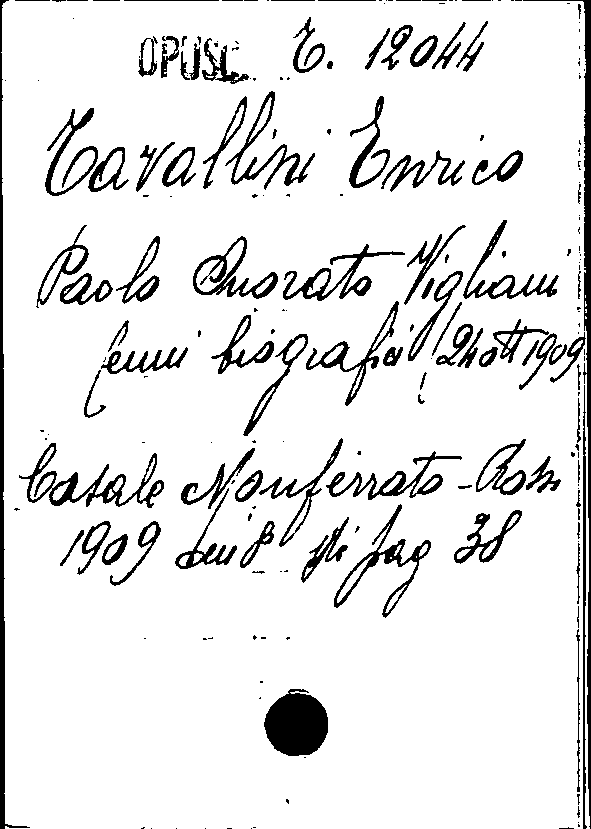 OPUSC. T. 12044
Tavallini Enrico
Paolo Onorato Vigliani
Cenni biografici (24 ott 1909
Casale Monferrato - Rossi
1909 in 8° di pag 38